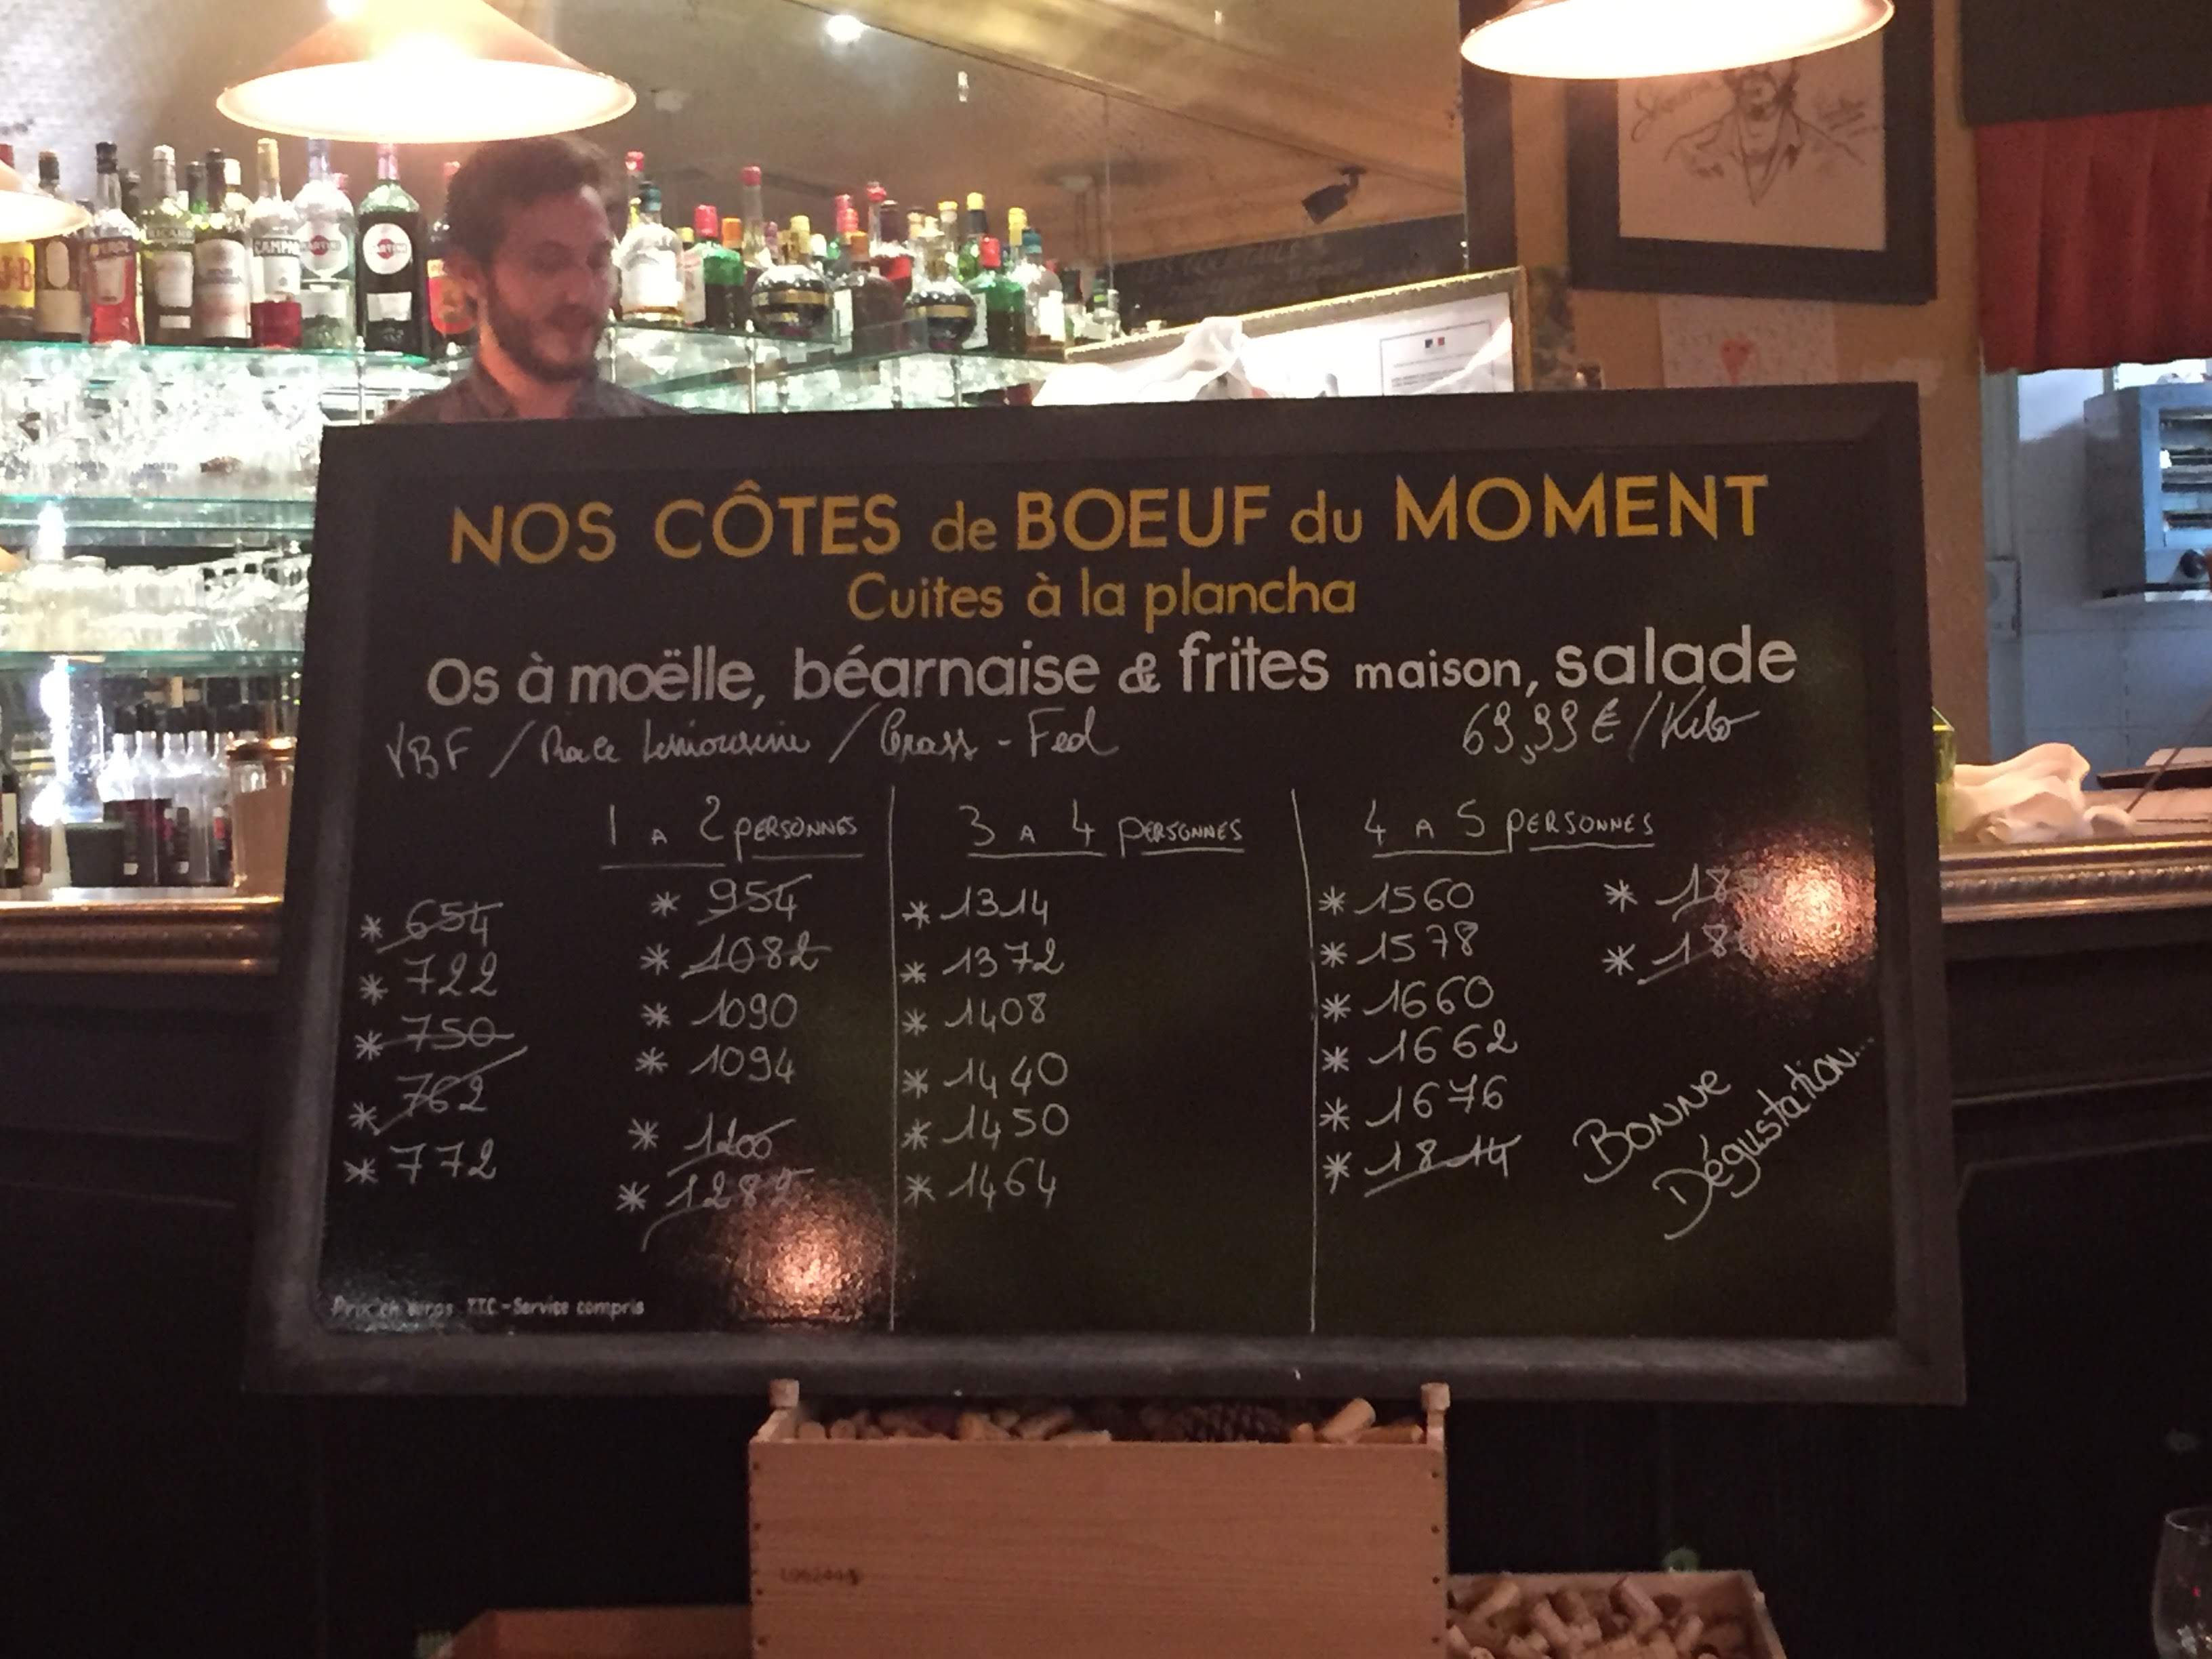 NOS CÔTES de BOEUF du MOMENT
Cuites à la plancha
Os à moëlle, béarnaise & frites maison, salade
VBF / Race Limousine / Grass-Fed
69,99 € / Kilo
1 A 2 PERSONNES
* 654
* 722
* 750
* 762
* 772
* 954
* 1082
* 1090
* 1094
* 1200
3 A 4 PERSONNES
* 1314
* 1372
* 1408
* 1440
* 1450
* 1464
4 A 5 PERSONNES
* 1560
* 1578
* 1660
* 1662
* 1676
* 1814
BONNE
Dégustation...
Prix en euros TTC - Service compris
CAMPARI
MARTINI
MARTINI
RICARD